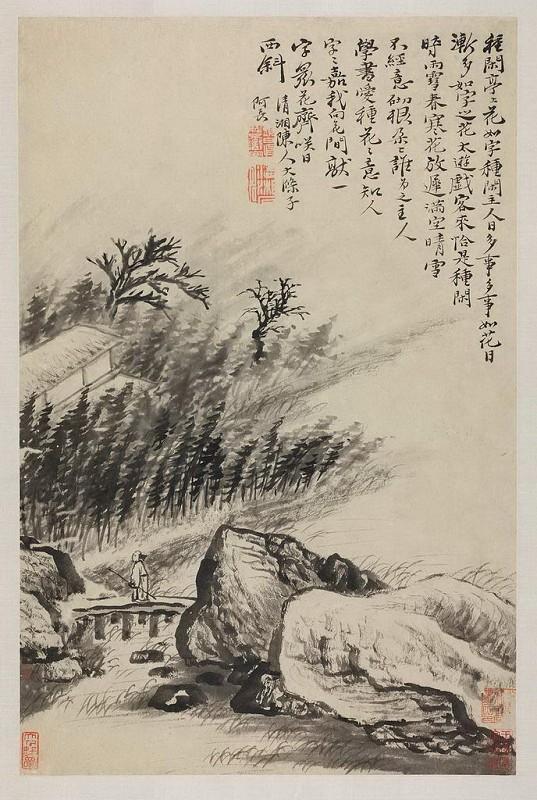 種閑亭〻花如字種閑主人日多事多事如花日
漸多如字之花太遊戲客來恰是種閑
時雨雪春寒花放遲滿空晴雪
不經意砌根朵〻誰為之主人
學書愛種花〻意知人
字〻嘉我向花間獻一
字眾花齊咲日
西斜
清湘陳人大滌子
阿長